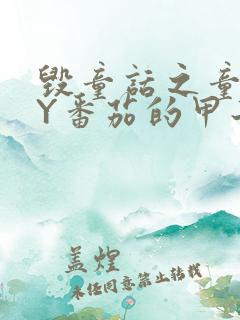 毁童话之童
Y番茄的甲
盖煌
未经同意禁止转载